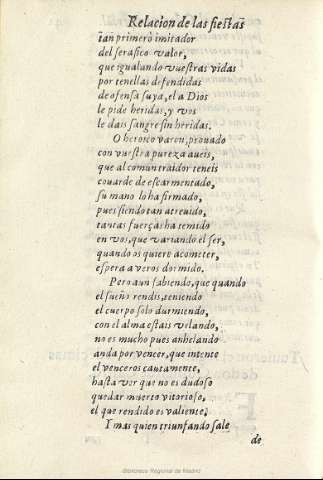 Relacion de las fiestas
tan primero imitador
del serafico valor,
que igualando vuestras vidas
por tenellas defendidas
de ofensa suya, el a Dios
le pide heridas, y vos
le dais sangre sin heridas.
O heroico varon, prouado
con vuestra pureza aueis,
que al comun traidor teneis
couarde de escarmentado,
su mano lo ha firmado,
pues siendo tan atreuido,
tantas fuerças ha temido
en vos, que variando el ser,
quando os quiere acometer,
espera a veros dormido.
Pero aun sabiendo, que quando
el sueño rendis, teniendo
el cuerpo solo durmiendo,
con el alma estais velando,
no es mucho pues anhelando
anda por vencer, que intente
el venceros cautamente,
hasta ver que no es dudoso
quedar muerto vitorioso,
el que rendido es valiente,
Y mas quien triunfando sale
de
Biblioteca Regional de Madrid